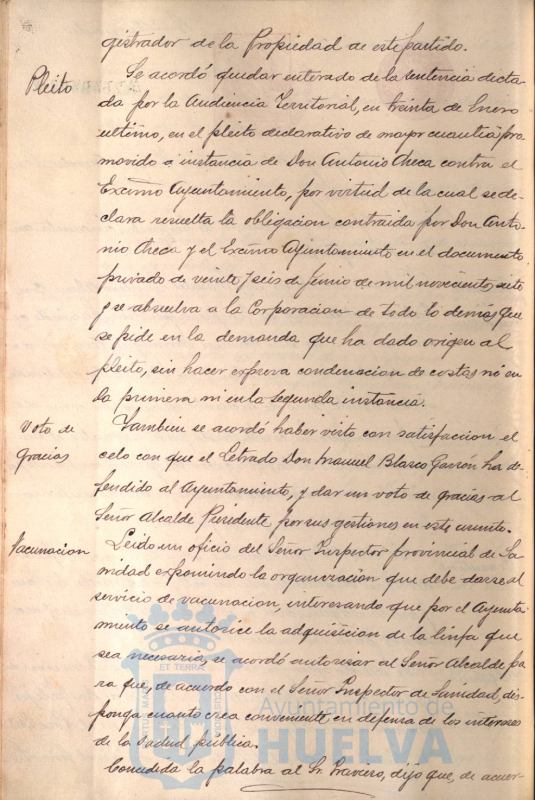 gistrador de la Propiedad de este partido.
Pleito
Se acordó quedar enterado de la sentencia dicta-
da por la Audiencia Territorial, en treinta de Enero
ultimo, en el pleito declarativo de mayor cuantia pro-
movido a instancia de Don Antonio Checa contra el
Excmo Ayuntamiento, por virtud de la cual se de-
clara resuelta la obligacion contraida por Don Anto-
nio Checa y el Excmo Ayuntamiento en el documento
privado de veinte y seis de Junio de mil novecientos siete
y se absuelva a la Corporacion de todo lo demás que
se pide en la demanda que ha dado origen al
pleito, sin hacer expresa condenacion de costas ni en
la primera ni en la segunda instancia.
Voto de
gracias
Tambien se acordó haber visto con satisfaccion el
celo con que el Letrado Don Manuel Blasco Garzón ha de-
fendido al Ayuntamiento, y dar un voto de gracias al
Señor Alcalde Presidente por sus gestiones en este asunto.
Vacunacion
Leido un oficio del Señor Inspector provincial de Sa-
nidad exponiendo la organizacion que debe darse al
servicio de vacunacion, interesando que por el Ayunta-
miento se autorice la adquisicion de la linfa que
sea necesaria, se acordó autorizar al Señor Alcalde pa-
ra que, de acuerdo con el Señor Inspector de Sanidad, dis-
ponga cuanto crea conveniente en defensa de los intereses
de la salud pública.
Concedida la palabra al Sr. Traviero, dijo que, de acuer-
ET TERRA
Ayuntamiento de
HUELVA